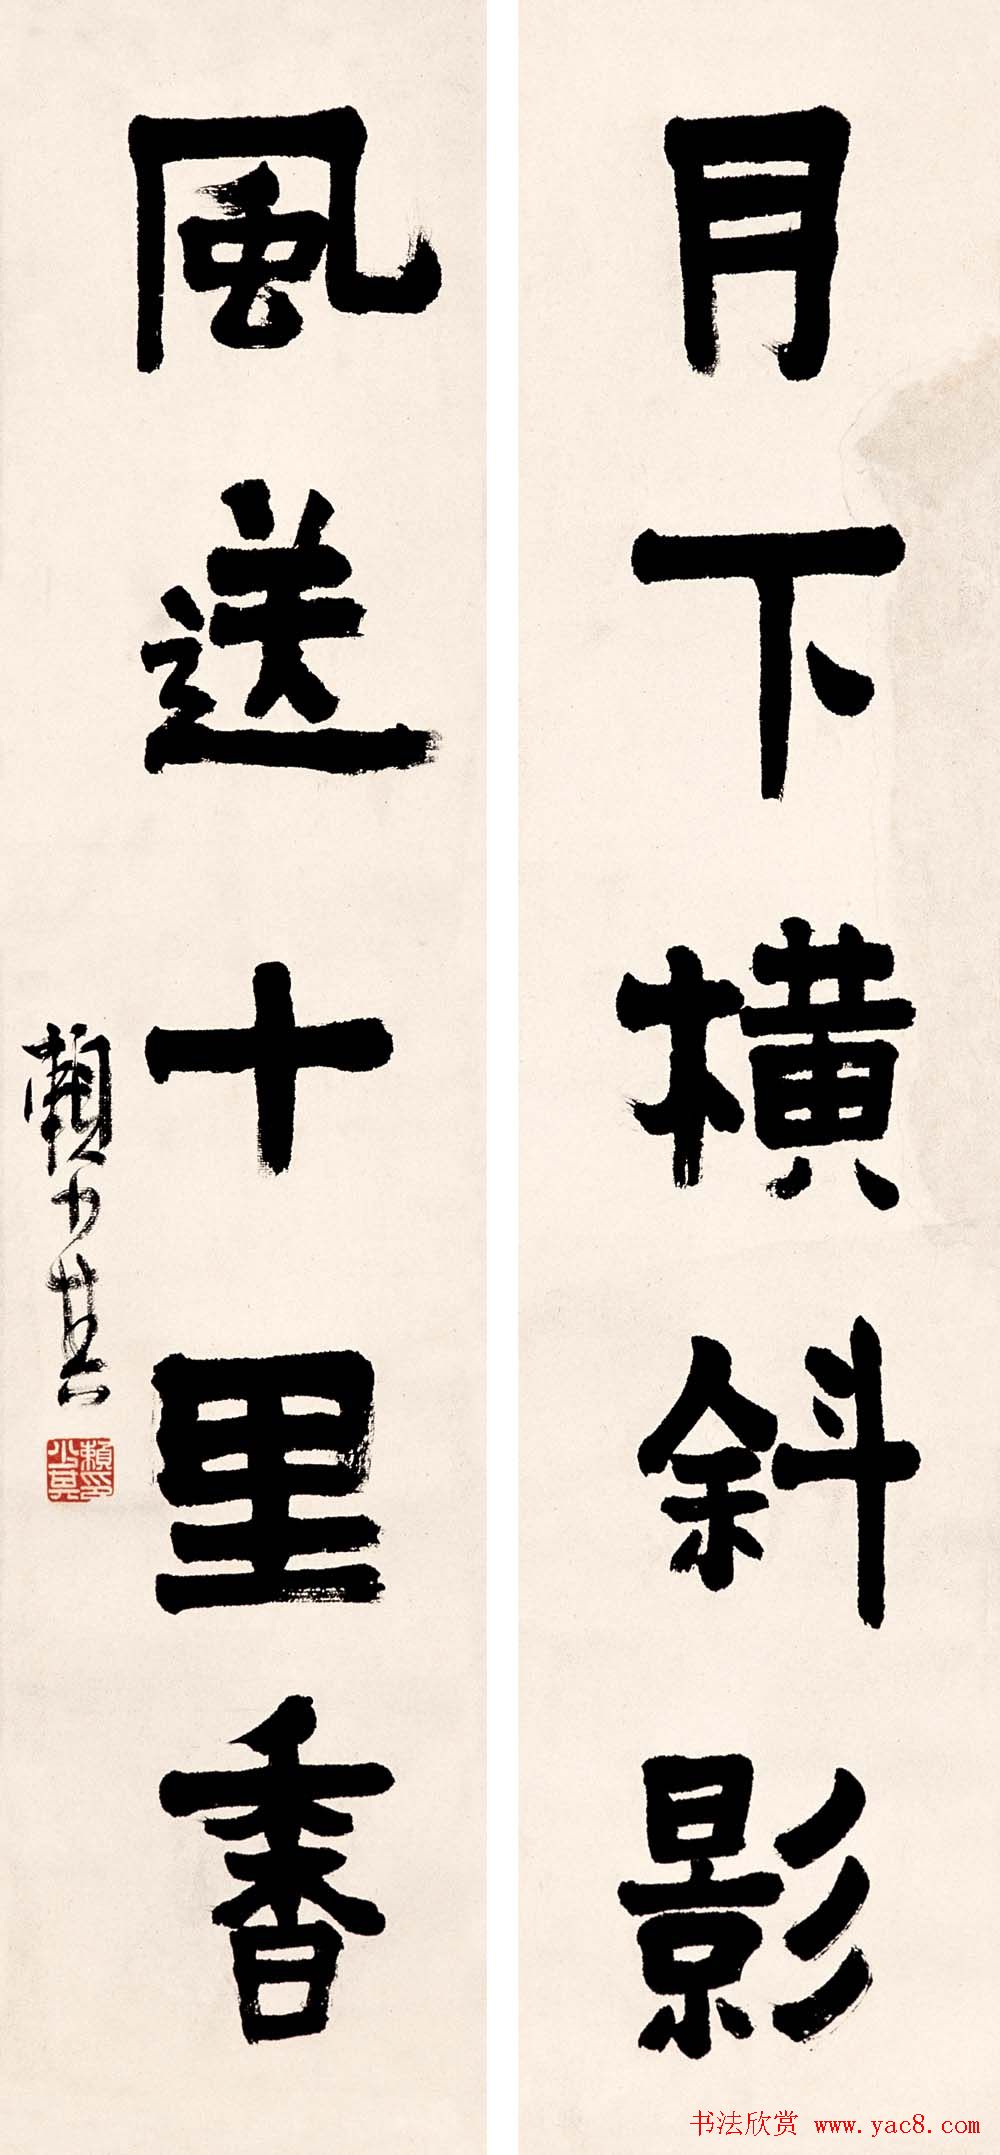 月下橫斜影
風送十里香
賴少其
賴少其印
书法欣赏 www.yac8.com